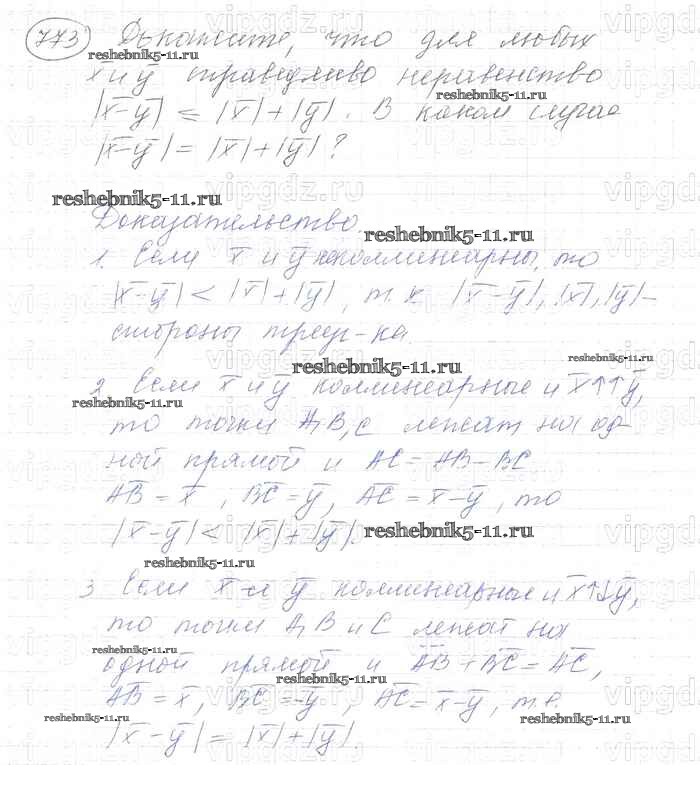 773 Докажите, что для любых
x̅ и y̅ справедливо неравенство
|x̅-y̅| ≤ |x̅|+|y̅|. В каком случае
|x̅-y̅| = |x̅|+|y̅|?
Доказательство.
1. Если x̅ и y̅ неколлинеарны, то
|x̅-y̅| < |x̅|+|y̅|, т.к. |x̅-y̅|, |x̅|, |y̅| -
стороны треуг-ка.
2. Если x̅ и y̅ коллинеарные и x̅↑↑y̅,
то точки A, B, C лежат на од-
ной прямой и AC = AB - BC
A̅B̅ = x̅, B̅C̅ = y̅, A̅C̅ = x̅-y̅, то
|x̅-y̅| < |x̅|+|y̅|.
3 Если x̅ и y̅ коллинеарные и x̅↑↓y̅,
то точки A, B и C лежат на
одной прямой и A̅B̅ + B̅C̅ = A̅C̅,
A̅B̅ = x̅, B̅C̅ = -y̅, A̅C̅ = x̅-y̅, т.е.
|x̅-y̅| = |x̅|+|y̅|.
reshebnik5-11.ru
reshebnik5-11.ru
reshebnik5-11.ru
reshebnik5-11.ru
reshebnik5-11.ru
reshebnik5-11.ru
reshebnik5-11.ru
reshebnik5-11.ru
reshebnik5-11.ru
reshebnik5-11.ru
reshebnik5-11.ru
reshebnik5-11.ru
reshebnik5-11.ru
vipgdz.ru